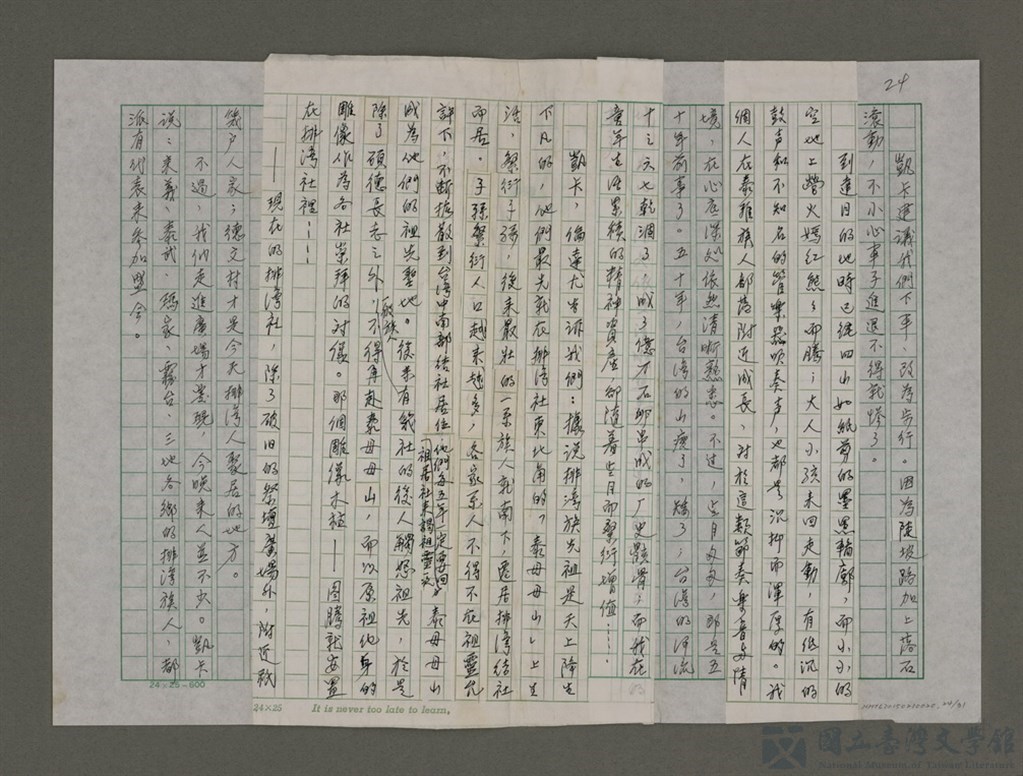 24
凱卡建議我們下車、改為步行。因為陡坡路加上落石
滾動,不小心車子進退不得就慘了。
到達目的地時已經四山如紙剪的墨黑輪廓,而小小的
空地上營火嫣紅熊熊而騰;大人小孩來回走動,有低沉的
鼓声和不知名的管樂器吹奏声,也都是沉抑而渾厚的。我
個人在泰雅族人部落附近成長,對於這類節奏樂音與情
境,在心底深處依然清晰熟悉。不过,歲月匆匆,那是五
十年前事了。五十年,台灣的山瘦了,矮了;台灣的河流
十之六七乾涸了,成了億万石卵串成的歷史骸骨;而我在
童年生活累積的精神資產卻隨着歲月而繁衍增值……。
凱卡,倫達尤告訴我們:據說排灣族先祖是天上降生
下凡的,他們最先就在排灣社東北角的「泰母母山」上生
活,繁衍子孫,後來最壯的一系族人就南下,遷居排灣結社
而居。子孫繁衍人口越來越多,各家系人不得不在祖靈允
許下,不斷擴散到台灣中南部結社居住
他們每五年一定要回
祖居社來謁祖靈於泰母母山
成為他們的祖先聖地。後來有幾社的後人觸怒祖先,於是
除了碩德長老之外,
般族人
不得再赴泰母母山,而以原祖他身的
雕像作為各社崇拜的对像。那個雕像木柱——图騰就安置
在排湾社裡……
——現在的排湾社,除了破旧的祭壇廣場外,附近祇
幾户人家;德文村才是今天排湾人聚居的地方。
不過,我們走進廣場才發現,今晚來人並不少。凱卡
說:來義、泰武、瑪家、霧台、三地各鄉的排湾族人,都
派有代表來参加盟会。
24×25=600
24×25
It is never too late to learn.
國立臺灣文學館
National Museum of Taiwan Literature